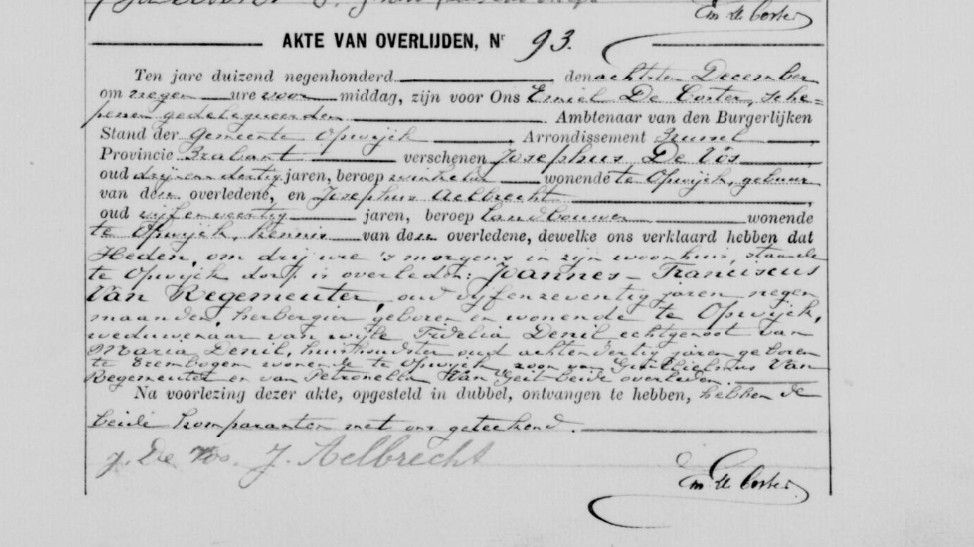 Em de Coster
AKTE VAN OVERLIJDEN, Nr 93.
Ten jare duizend negenhonderd den achtsten December
om negen ure voor middag, zijn voor Ons Emiel De Coster, sche=
penen gedelegueerden Ambtenaar van den Burgerlijken
Stand der Gemeente Opwijck Arrondissement Brussel
Provincie Brabant verschenen Josephus De Vos
oud drij en dertig jaren, beroep winkelier wonende te Opwijck, gebuur
van den overledene, en Josephus Aelbrecht
oud vijf en veertig jaren, beroep landbouwer wonende
te Opwijck, kennis van den overledene, dewelke ons verklaard hebben dat
Heden, om drij ure 's morgens in zijn woonhuis, staande
te Opwijck dorp is overleden: Joannes-Franciscus
Van Regemeuter, oud vijfenzeventig jaren negen
maanden, herbergier geboren en wonende te Opwijck,
weduwenaar van wijle Fidelia Denil echtgenoot van
Maria Denil, huishoudster oud achtendertig jaren geboren
te wonende te Opwijck zoon van Guillielmus Van
Regemeuter en van Petronella Van beide overleden.
Na voorlezing dezer akte, opgesteld in dubbel, ontvangen te hebben, hebben de
beide komparanten met ons geteekend.
J. De Vos. J. Aelbrecht
Em de Coster